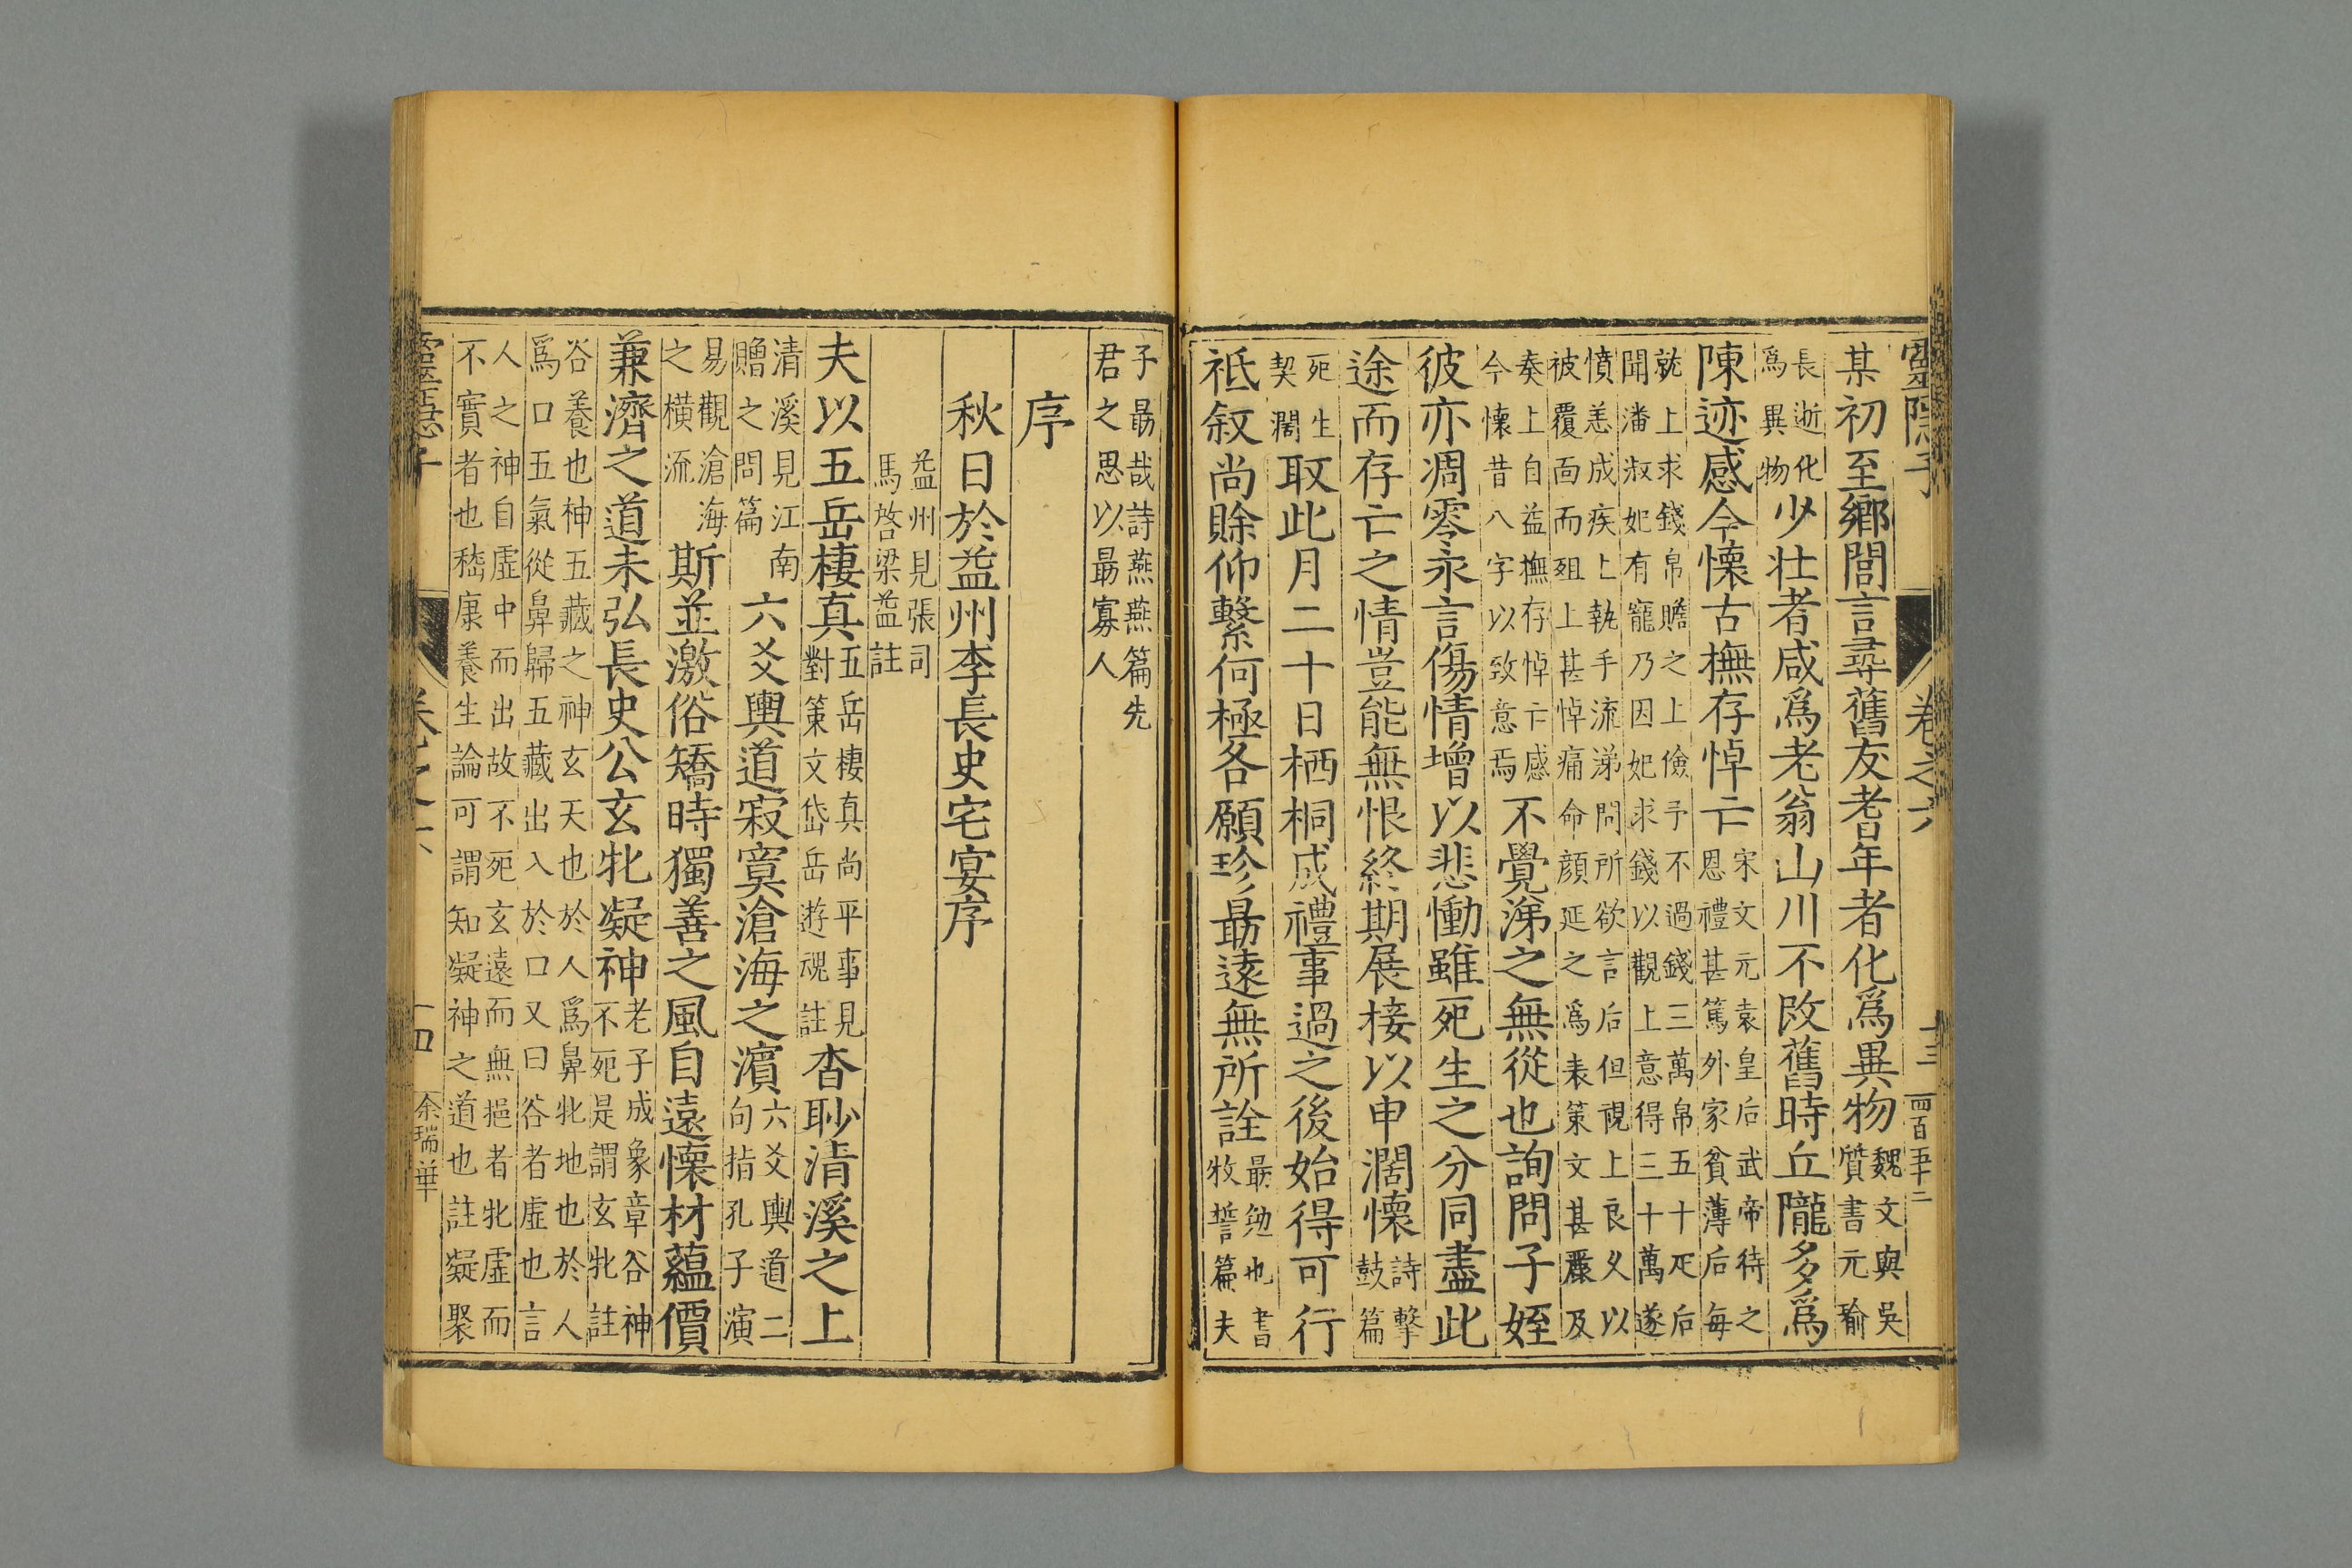 靈隱子
卷之六
十三
四百五十二
某初至鄉閭言尋舊友耆年者化爲異物魏文與吳質書元瑜
長逝化爲異物少壯者咸爲老翁山川不改舊時丘隴多爲
陳迹感今懷古撫存悼亡宋文元袁皇后武帝待之恩禮甚篤外家貧薄后每
就上求錢帛贍之上儉予不過錢三萬帛五十疋后聞潘淑妃有寵乃因妃求錢以觀上意得三十萬遂
憤恚成疾上執手流涕問所欲言后但視上良久以被覆面而殂上甚悼痛命顔延之爲哀策文甚麗及
奏上自益撫存悼亡感今懷昔八字以致意焉不覺涕之無從也詢問子姪
彼亦凋零永言傷情增以悲慟雖死生之分同盡此
途而存亡之情豈能無恨終期展接以申濶懷詩擊鼓篇
死生契濶取此月二十日栖桐成禮事過之後始得可行
祗叙尚賖仰繫何極各願珍勗遠無所詮最勉也書牧誓篇夫
子勗哉詩燕燕篇先君之思以最寡人
序
秋日於益州李長史宅宴序
益州見張司馬啓梁益註
夫以五岳棲真五岳棲真尚平事見對策文岱岳遊魂註杳眇清溪之上
清溪見江南贈之問篇六爻輿道寂寞滄海之濱六爻輿道二句指孔子演
易觀滄海之橫流斯並激俗矯時獨善之風自遠懷材蘊價
兼濟之道未弘長史公玄牝凝神老子成象章谷神不死是謂玄牝註
谷養也神五藏之神玄天也於人爲鼻牝地也於人爲口五氣從鼻歸五藏出入於口又曰谷者虛也言
人之神自虛中而出故不死玄遠而無挹者牝虛而不實者也嵇康養生論可謂知凝神之道也註凝聚
靈隱子
卷之六
十四
余瑞華